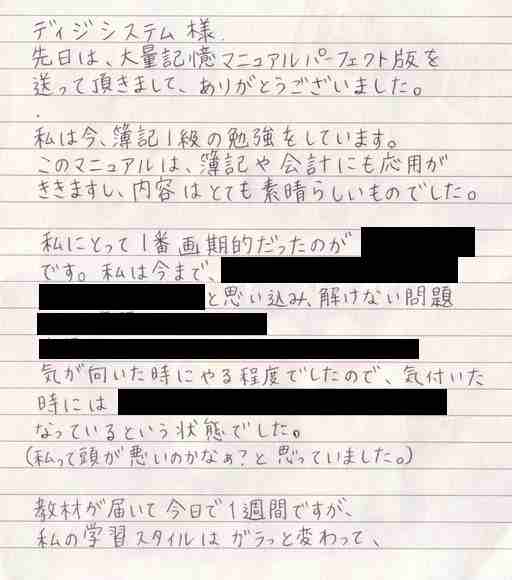 ディジシステム様
先日は、大量記憶マニュアルパーフェクト版を
送って頂きまして、ありがとうございました。
私は今、簿記1級の勉強をしています。
このマニュアルは、簿記や会計にも応用が
ききますし、内容はとても素晴らしいものでした。
私にとって1番画期的だったのが
です。私は今まで、
と思い込み、解けない問題
気が向いた時にやる程度でしたので、気付いた
時には
なっているという状態でした。
(私って頭が悪いのかなぁ?と思っていました。)
教材が届いて今日で1週間ですが、
私の学習スタイルはガラっと変わって、